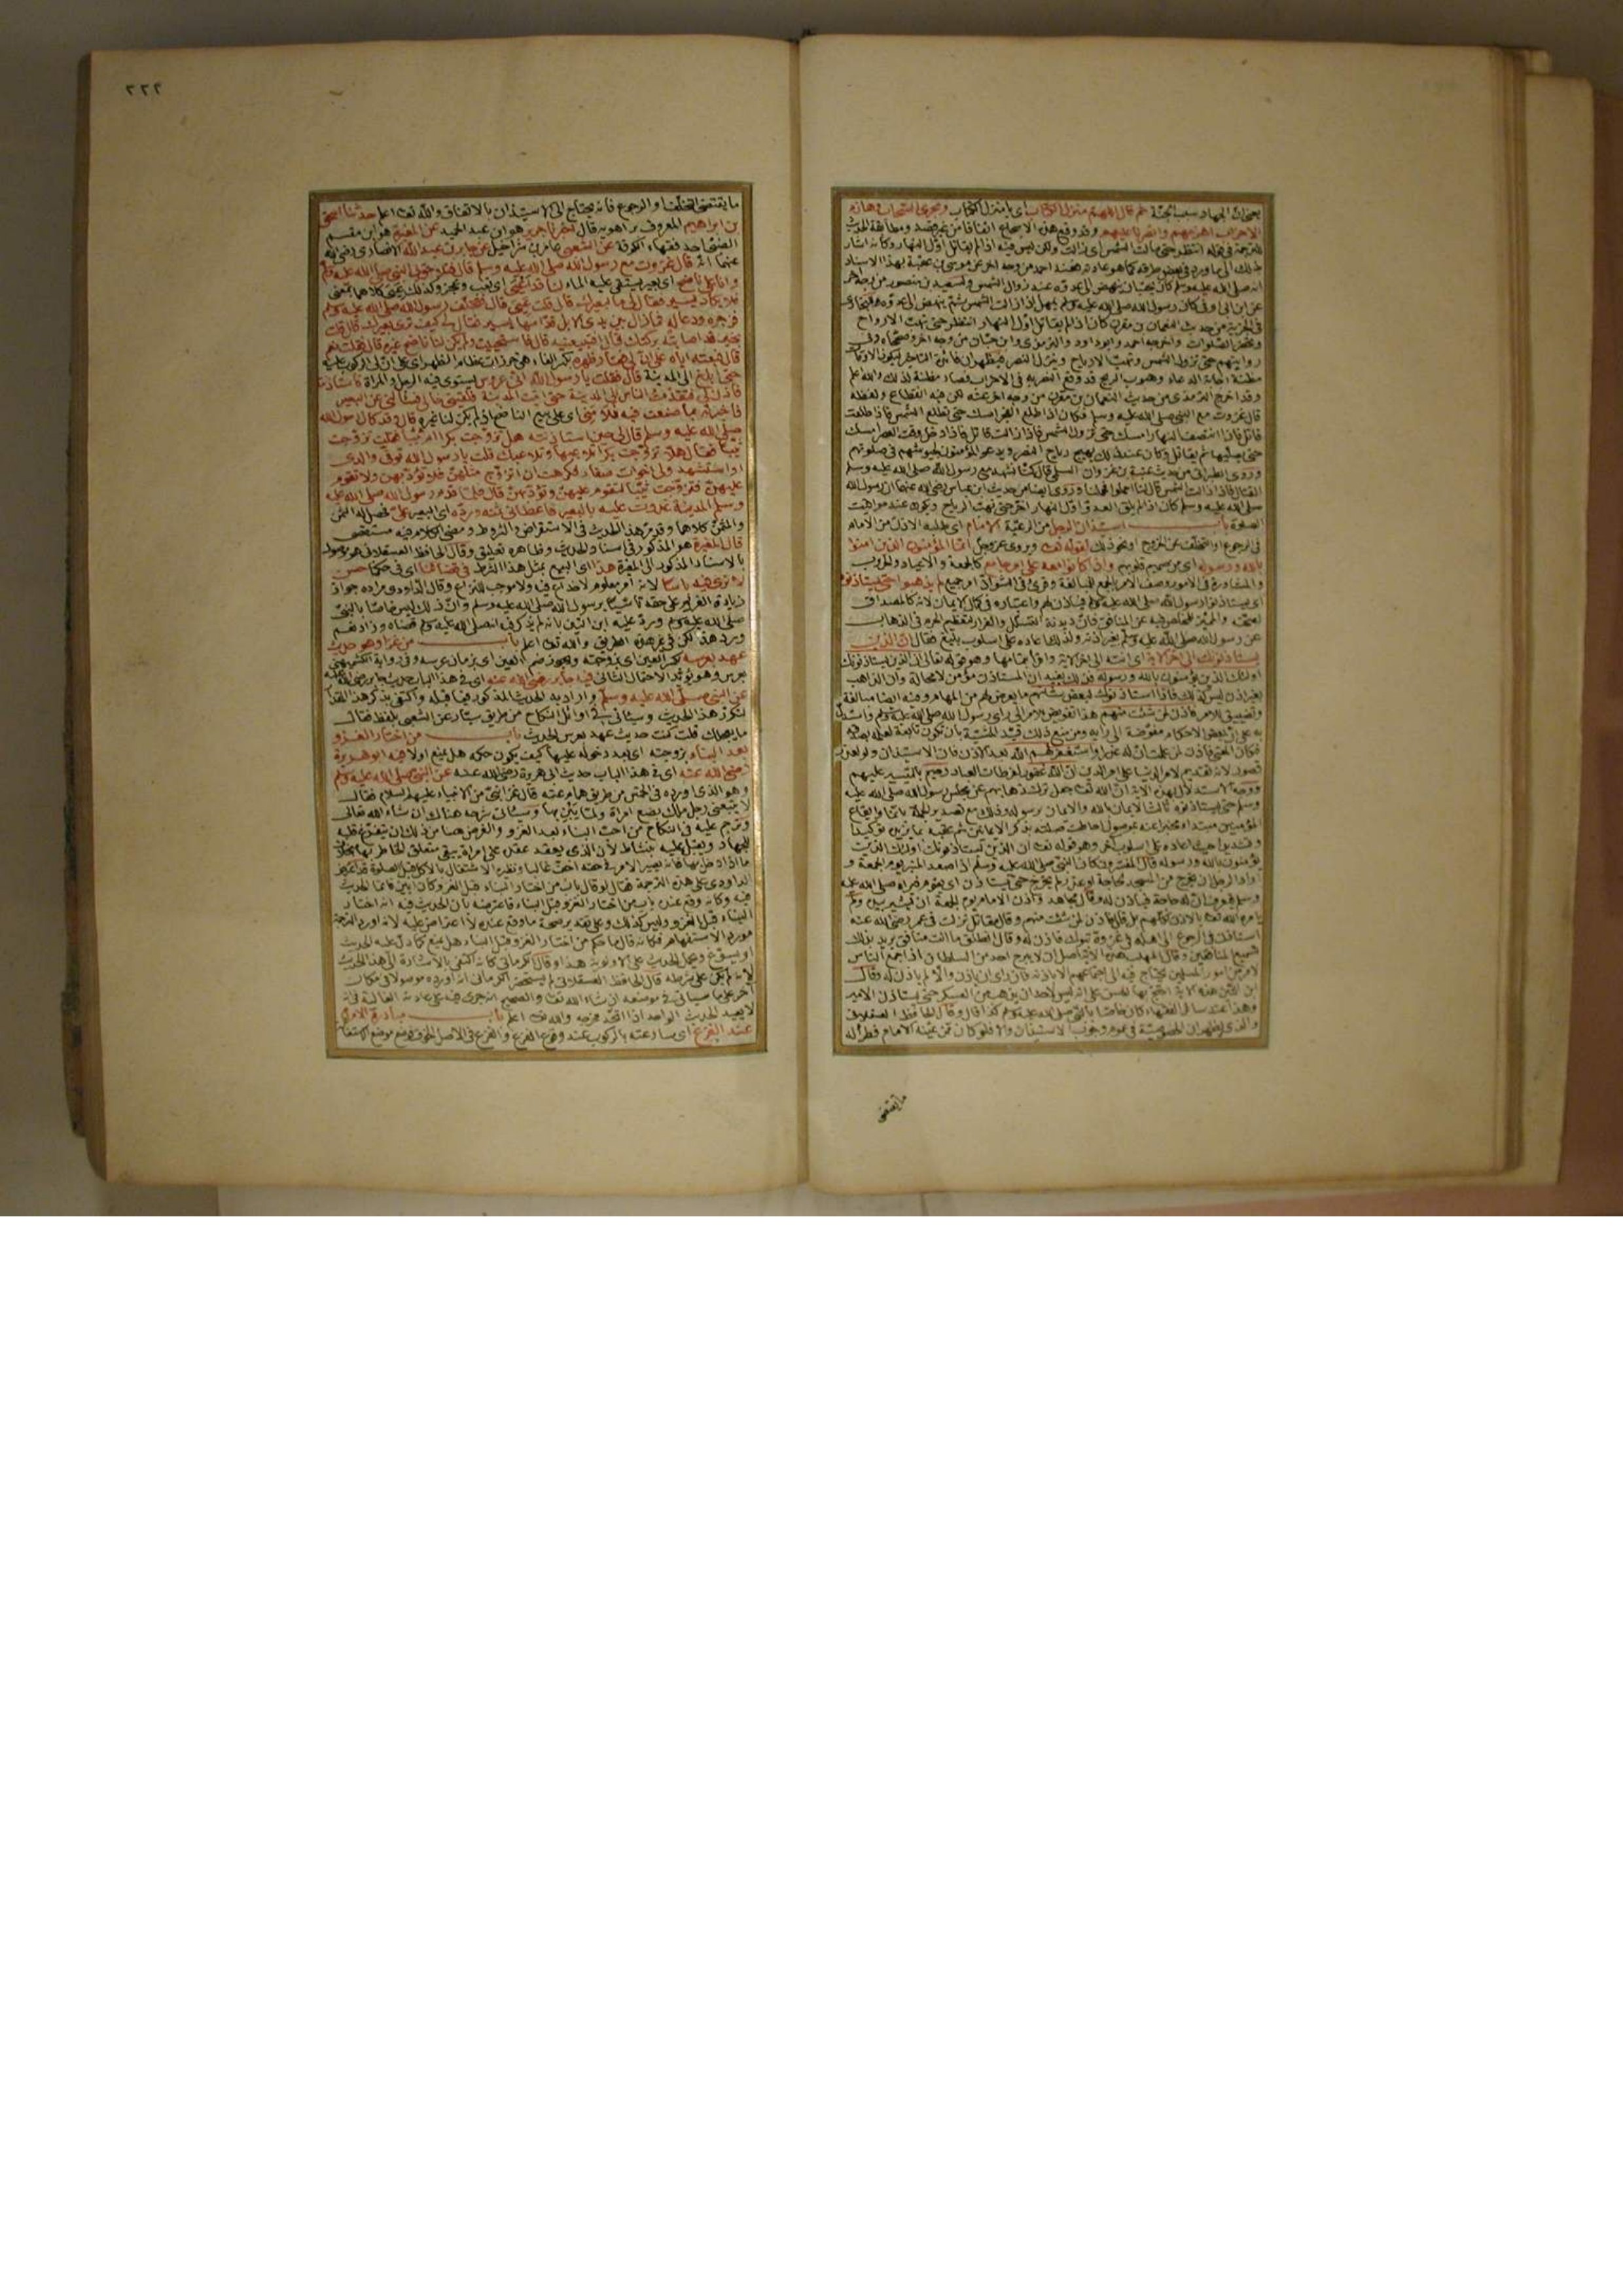 يعني ان الجهاد سبب الجنة ثم قال اللهم منزل الكتاب اى يا منزل الكتاب ومجرى السحاب وهازم
الاحزاب اهزمهم وانصرنا عليهم وقد وقع هذا السجع اتفاقا من غير قصد ومطابقة الحديث
للترجمة فى قوله انتظر حتى مالت الشمس اى زالت ولكن ليس فيه اذا لم يقاتل اول النهار وكانه اشار
بذلك الى ما ورد فى بعض طرقه كما هو عادته فعند احمد من وجه اخر عن موسى بن عقبة بهذا الاسناد
انه صلى الله عليه وسلم كان يحب ان ينهض الى عدوه عند زوال الشمس ولسعيد بن منصور من وجه اخر
عن ابن ابى اوفى كان رسول الله صلى الله عليه وسلم يمهل اذا زالت الشمس ثم ينهض الى عدوه وللبخارى
فى الجزية من حديث النعمان بن مقرن كان اذا لم يقاتل اول النهار انتظر حتى تهب الارواح
وتحضر الصلوات واخرجه احمد وابو داود والترمذى وابن حبان من وجه اخر وصححاه وفى
روايتهم حتى تزول الشمس وتهب الارياح وينزل النصر فيظهر ان فائدة التاخير لكون اوقات
مظنة اجابة الدعاء وهبوب الريح قد وقع النصر به فى الاحزاب فصار مظنة لذلك والله اعلم
وقد اخرج الترمذى من حديث النعمان بن مقرن من وجه اخر عنه لكن فيه انقطاع ولفظه
قال غزوت مع النبى صلى الله عليه وسلم فكان اذا طلع الفجر امسك حتى تطلع الشمس فاذا طلعت
قاتل فاذا انتصف النهار امسك حتى تزول الشمس فاذا زالت قاتل فاذا دخل وقت العصر امسك
حتى يصليها ثم يقاتل وكان عند ذلك يهيج رياح النصر ويدعو المؤمنون لجيوشهم فى صلوتهم
وروى الطبرانى من حديث عتبة بن غزوان السلمى قال كنا نشهد مع رسول الله صلى الله عليه وسلم
القتال فاذا زالت الشمس قال لنا احملوا فحملنا وروى ايضا من حديث ابن عباس رضى الله عنهما ان رسول الله
صلى الله عليه وسلم كان اذا لم يلق العدو اول النهار اخر حتى تهب الرياح ويكون عند مواقيت
الصلوة باب استئذان الرجل من الرعية الامام اى طلبه الاذن من الامام
فى الرجوع او التخلف عن الخروج او نحو ذلك لقوله تعالى ويروى عز وجل انما المؤمنون الذين امنوا
بالله ورسوله اى من صميم قلوبهم واذا كانوا معه على امر جامع كالجمعة والاعياد والحروب
والمشاورة فى الامور ووصف الامر بالجمع للمبالغة وقرئ امر جميع لم يذهبوا حتى يستاذنوه
اى يستاذنوا رسول الله صلى الله عليه وسلم فياذن لهم واعتباره فى كمال الايمان لانه كالمصداق
لصحته والمميز للمخلص فيه عن المنافق فان ديدنه التسلل والفرار ولتعظيم الجرم فى الذهاب
عن رسول الله صلى الله عليه وسلم بغير اذنه ولذلك اعاده على اسلوب بليغ فقال ان الذين
يستاذنونك الى اخر الاية
اولئك الذين يؤمنون بالله ورسوله فانه يفيد ان المستاذن مؤمن لا محالة وان الذاهب
بغير اذن ليس كذلك فاذا استاذنوك لبعض شانهم ما يعرض لهم من المهام وفيه ايضا مبالغة
وتضييق للامر فأذن لمن شئت منهم هذا تفويض للامر الى راى رسول الله صلى الله عليه وسلم واستدل
به على ان بعض الاحكام مفوضة الى رايه ومن منع ذلك قيد المشية بان تكون تابعة لعلمه بصدقه
فكان المعنى فأذن لمن علمت ان له عذرا واستغفر لهم الله بعد الاذن فان الاستيذان ولو لعذر
قصور لانه تقديم لامر الدنيا على امر الدين ان الله غفور لفرطات العباد رحيم بالتيسير عليهم
ووجه الاستدلال بهذه الاية ان الله تعالى جعل ترك ذهابهم عن مجلس رسول الله صلى الله عليه
وسلم حتى يستاذنوه ثالث الايمان بالله والايمان برسوله وذلك مع تصدير الجملة بانما وايقاع
المؤمنين مبتدا مخبرا عنه بموصول احاطت صلته بذكر الايمانين ثم عقبه بما يزيده توكيدا
وتشديدا حيث اعاده على اسلوب اخر وهو قوله تعالى ان الذين يستاذنونك اولئك الذين
يؤمنون بالله ورسوله قال المفسرون كان النبى صلى الله عليه وسلم اذا صعد المنبر يوم الجمعة و
اراد الرجل ان يخرج من المسجد لحاجة او عذر لم يخرج حتى
وسلم فيعرف ان له حاجة فياذن له وقال مجاهد واذن الامام يوم الجمعة ان يشير بيده ولم
يامره الله تعالى بالاذن لكلهم بل قال فأذن لمن شئت منهم وقال مقاتل نزلت فى عمر رضى الله عنه
استاذن فى الرجوع الى اهله فى غزوة تبوك فاذن له وقال انطلق ما انت منافق يريد بذلك
تسميع المنافقين وقال المهلب هذه الاية اصل ان لا يبرح احد من السلطان اذا جمع الناس
لامر من امور المسلمين يحتاج فيه الى اجتماعهم الا باذنه فان راى ان ياذن له والا لم ياذن له وقال
ابن التين هذه الاية احتج بها الحسن على انه ليس لاحد ان يذهب من العسكر حتى يستاذن الامير
وهذا عند سائر الفقهاء كان خاصا بالنبى صلى الله عليه وسلم كذا قال وقال الحافظ العسقلانى
والذى يظهر ان الخصوصية فى عموم وجوب الاستيذان والا فلو كان ممن عينه الامام فطرأ له
ما يقتضى
٢٢٢
ما يقتضى التخلف او الرجوع فانه يحتاج الى الاستيذان بالاتفاق والله تعالى اعلم حدثنا اسحق
بن ابراهيم المعروف بن راهويه قال اخبرنا جرير هو ابن عبد الحميد عن المغيرة هو ابن مقسم
الضبى احد فقهاء الكوفة عن الشعبى عامر بن شراحيل عن جابر بن عبد الله الانصارى رضى الله
عنهما انه قال غزوت مع رسول الله صلى الله عليه وسلم قال فتلاحق بى النبى صلى الله عليه وسلم
وانا على ناضح اى بعير يستقى عليه الماء لنا قد اعيى اى تعب وعجز وكذلك عيى كلاهما بمعنى
فلا يكاد يسير فقال لى ما لبعيرك قال قلت عيى قال فتخلف رسول الله صلى الله عليه وسلم
فزجره ودعا له فما زال بين يدى الابل قدامها يسير فقال لى كيف ترى بعيرك قال قلت
بخير قد اصابته بركتك قال افتبيعنيه قال فاستحييت ولم يكن لنا ناضح غيره قال فقلت نعم
قال فبعته اياه على ان لى فقار ظهره بكسر الفاء هى خرزات عظام الظهر اى على ان لى الركوب عليه
حتى ابلغ الى المدينة قال فقلت يا رسول الله انى عروس يستوى فيه الرجل والمراة فاستاذنته
فاذن لى فتقدمت الناس الى المدينة حتى اتيت المدينة فلقينى خالى فسالنى عن البعير
فاخبرته بما صنعت فيه فلامنى اى على بيع الناضح اذ لم يكن لنا غيره قال وقد كان رسول الله
صلى الله عليه وسلم قال لى حين استاذنته هل تزوجت بكرا ام ثيبا فقلت تزوجت
ثيبا فقال هلا تزوجت بكرا تلاعبها وتلاعبك قلت يا رسول الله توفى والدى
او استشهد ولى اخوات صغار فكرهت ان اتزوج مثلهن فلا تؤدبهن ولا تقوم
عليهن فتزوجت ثيبا لتقوم عليهن وتؤدبهن قال فلما قدم رسول الله صلى الله عليه
وسلم المدينة غدوت عليه بالبعير فاعطانى ثمنه ورده اى البعير على فحصل له الثمن
والمثمن كلاهما وقد مر هذا الحديث فى الاستقراض والشروط ومضى الكلام فيه مستقصى
قال المغيرة هو المذكور فى اسناد الحديث وظاهره تعليق وقال الحافظ العسقلانى هو موصول
بالاسناد المذكور الى المغيرة هذا اى البيع بمثل هذا الشرط فى قضائنا اى فى حكمنا حسن
لا نرى به باسا لانه امر معلوم لا خداع فيه ولا موجب للنزاع وقال الداودى مراده جواز
زيادة الغريم على حقه تاسيا برسول الله صلى الله عليه وسلم وان ذلك ليس خاصا بالنبى
صلى الله عليه وسلم ورد عليه ابن التين بانه لم يذكر فيه انه صلى الله عليه وسلم قضاه وزاد نعم
ورد هذا لكن فى غير هذه الطريق والله تعالى اعلم باب من غزا وهو حديث
عهد بعرسه بكسر العين اى بزوجته ويجوز ضم العين اى بزمان عرسه وفى رواية الكشميهنى
بعرس وهو يؤيد الاحتمال الثانى فيه جابر رضى الله عنه اى فى هذا الباب حديث جابر رضى الله عنه
عن النبى صلى الله عليه وسلم واراد به الحديث المذكور فيما قبله واكتفى بذكر هذا القدر
لتكرر هذا الحديث وسياتى فى اوائل النكاح من طريق سيار عن الشعبى بلفظ فقال
ما يعجلك قلت كنت حديث عهد بعرس الحديث باب من اختار الغزو
بعد البناء بزوجته اى بعد دخوله عليها كيف يكون حكمه هل يمنع اولا فيه ابو هريرة
رضى الله عنه اى فى هذا الباب حديث ابى هريرة رضى الله عنه عن النبى صلى الله عليه وسلم
وهو الذى اورده فى الخمس من طريق همام عنه قال غزا نبى من الانبياء عليهم السلام فقال
لا يتبعنى رجل ملك بضع امراة ولما يبن بها وسياتى شرحه هناك ان شاء الله تعالى
وترجم عليه فى النكاح من احب البناء بعد الغزو والغرض هنا من ذلك ان يتفرغ قلبه
للجهاد ويقبل عليه بنشاط لان الذى يعقد عقده على امراة يبقى متعلق الخاطر بها بخلاف
ما اذا دخل بها فانه يصير الامر فى حقه اخف غالبا ونظيره الاشتغال بالاكل قبل الصلوة
الداودى على هذه الترجمة فقال لو قال باب من اختار البناء قبل الغزو كان ابين فانما الحديث
فيه وكانه وقع عنده باب من اختار الغزو قبل البناء فاعترضه بان الحديث فيه انه اختار
البناء قبل الغزو وليس كذلك وعلى تقدير صحة ما وقع عنده لا اعتراض عليه لانه اورد الترجمة
مورد الاستفهام فكانه قال ما حكم من اختار الغزو قبل البناء هل يمنع كما دل عليه الحديث
او يسوغ ويحمل الحديث على الاولوية هذا وقال الكرمانى كانه اكتفى بالاشارة الى هذا الحديث
لانه لم يكن على شرطه قال الحافظ العسقلانى لم يستحضر الكرمانى انه اورده موصولا فى مكان
اخر على ما سياتى فى موضعه ان شاء الله تعالى والصحيح انه جرى فيه على عادته الغالبة فى انه
لا يعيد الحديث الواحد اذا اتحد مخرجه والله تعالى اعلم باب مبادرة الامام
عند الفزع اى مسارعته بالركوب عند وقوع الفزع والفزع فى الاصل الخوف فوضع موضع الاستغاثة